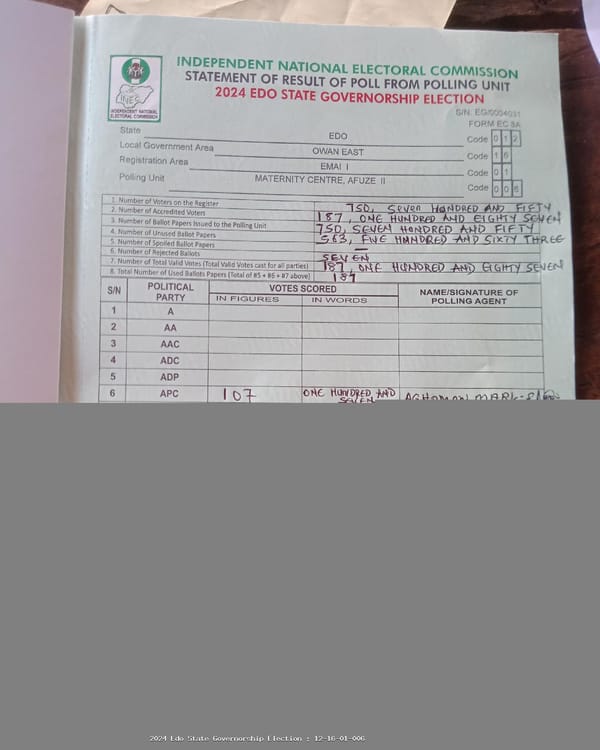 INDEPENDENT NATIONAL ELECTORAL COMMISSION
STATEMENT OF RESULT OF POLL FROM POLLING UNIT
2024 EDO STATE GOVERNORSHIP ELECTION
INEC
INDEPENDENT NATIONAL
ELECTORAL COMMISSION
S/N: EG/0004031
FORM EC 8A
State EDO Code 0 1 2
Local Government Area OWAN EAST Code 1 6
Registration Area EMAI I Code 0 1
Polling Unit MATERNITY CENTRE, AFUZE II Code 0 0 6
1. Number of Voters on the Register 750, Seven HUNDRED AND FIFTY
2. Number of Accredited Voters 187, ONE HUNDRED AND EIGHTY SEVEN
3. Number of Ballot Papers Issued to the Polling Unit 750, SEVEN HUNDRED AND FIFTY
4. Number of Unused Ballot Papers 563, FIVE HUNDRED AND SIXTY THREE
5. Number of Spoiled Ballot Papers —
6. Number of Rejected Ballots SEVEN
7. Number of Total Valid Votes (Total Valid Votes cast for all parties) 187, ONE HUNDRED AND EIGHTY SEVEN
8. Total Number of Used Ballots Papers (Total of #5 + #6 + #7 above) 187
S/N POLITICAL PARTY VOTES SCORED NAME/SIGNATURE OF POLLING AGENT
IN FIGURES IN WORDS
1 A
2 AA
3 AAC
4 ADC
5 ADP
6 APC 107 ONE HUNDRED AND SEVEN
2024 Edo State Governorship Election : 12-16-01-006